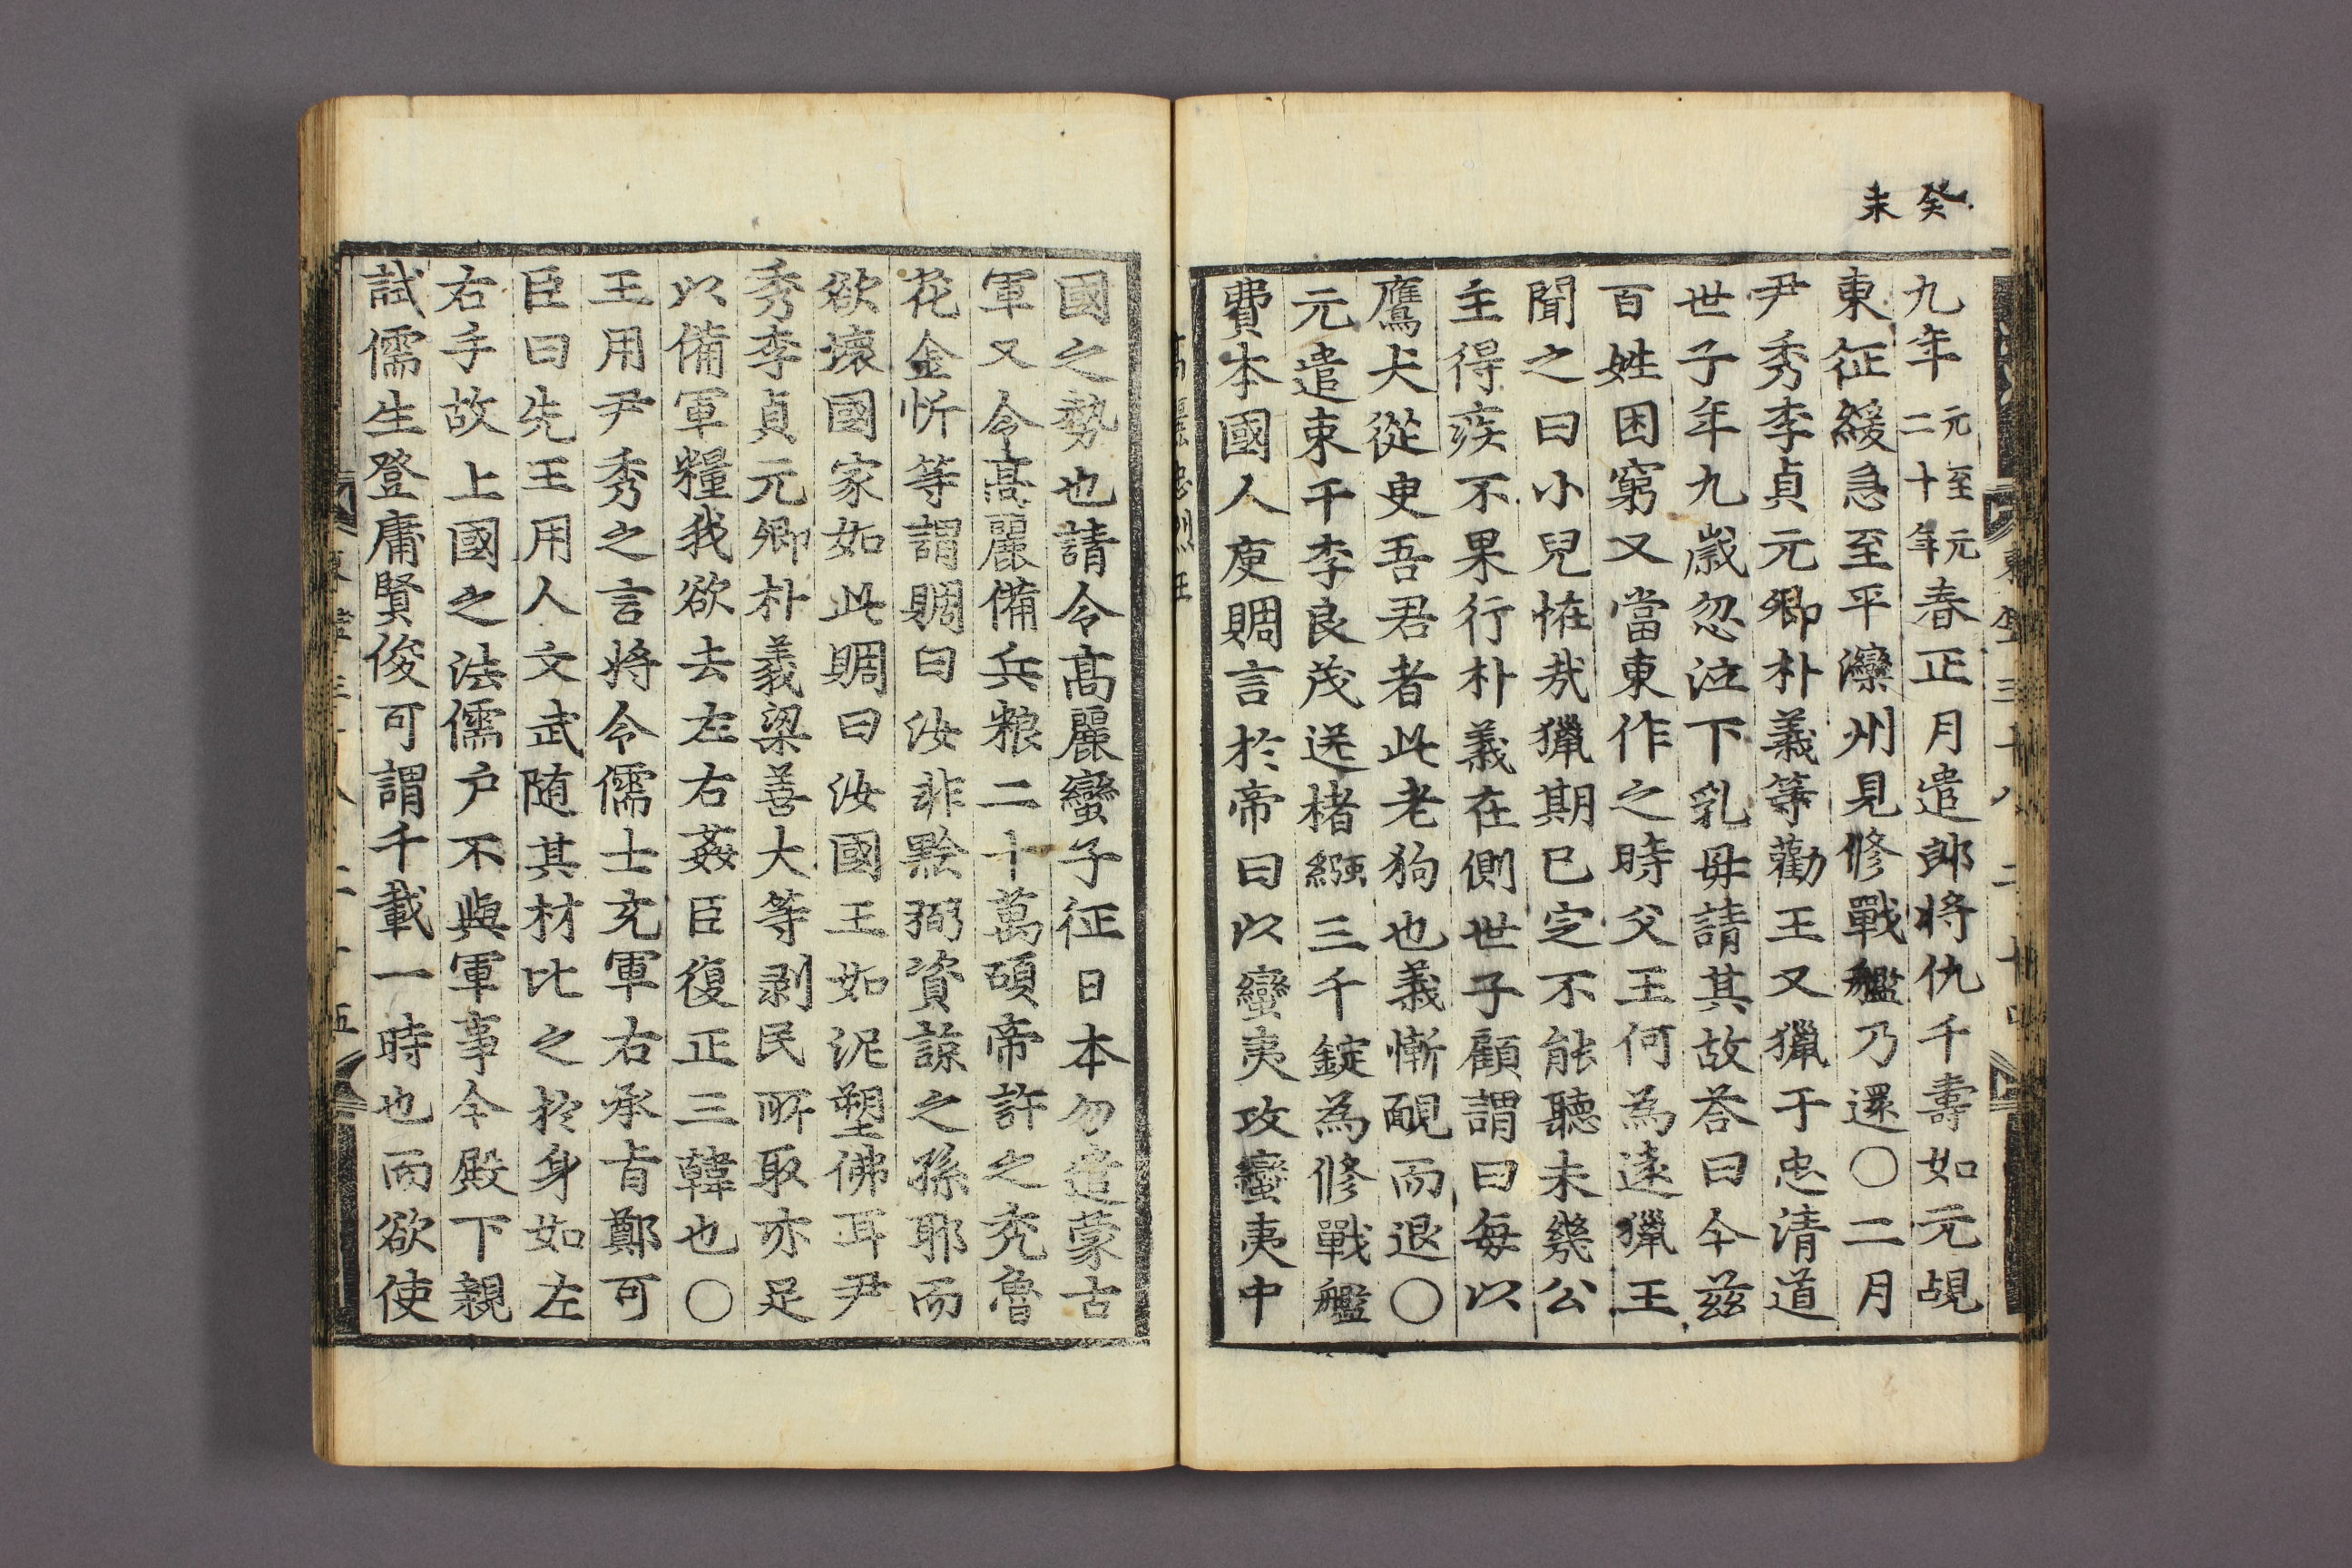 癸未
九年元至元二十年春正月遣郎將仇千壽如元覘
東征緩急至平灤州見修戰艦乃還〇二月
尹秀李貞元卿朴義等勸王又獵于忠清道
世子年九歲忽泣下乳母請其故荅曰今茲
百姓困窮又當東作之時父王何為遠獵王
聞之曰小兒恠㢤獵期已定不能聽未幾公
主得疾不果行朴義在側世子顧謂曰每以
鷹犬從吏吾君者此老狗也義慚靦而退〇
元遣束干李良茂送楮繦三千錠為修戰艦
費本國人庾賙言於帝曰以蠻夷攻蠻夷中
國之勢也請令髙麗蠻子征日本勿遣蒙古
軍又令髙麗備兵粮二十萬碩帝許之禿魯
花金忻等謂賙曰汝非黔弼資諒之孫耶而
欲壞國家如此賙曰汝國王如泥塑佛耳尹
秀李貞元卿朴義梁善大等剥民所取亦足
以備軍糧我欲去左右姦臣復正三韓也〇
王用尹秀之言將令儒士充軍右承旨鄭可
臣曰先王用人文武随其材比之於身如左
右手故上國之法儒户不與軍事今殿下親
試儒生登庸賢俊可謂千載一時也而欲使